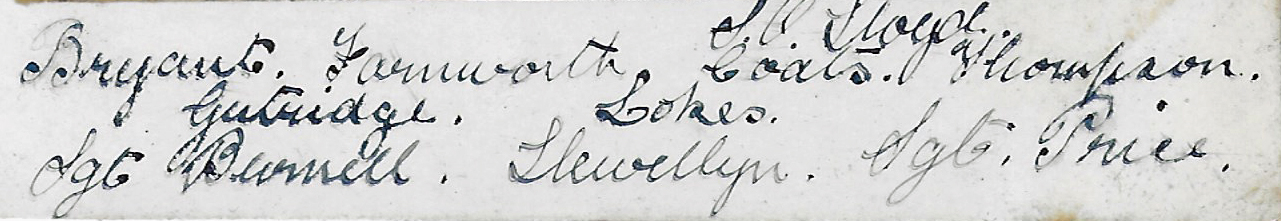 S.C. Lloyd.
Bryant. Farnworth. Coats. Thompson.
Gutridge. Lokes.
Sgt Burnell. Llewellyn. Sgt. Price.